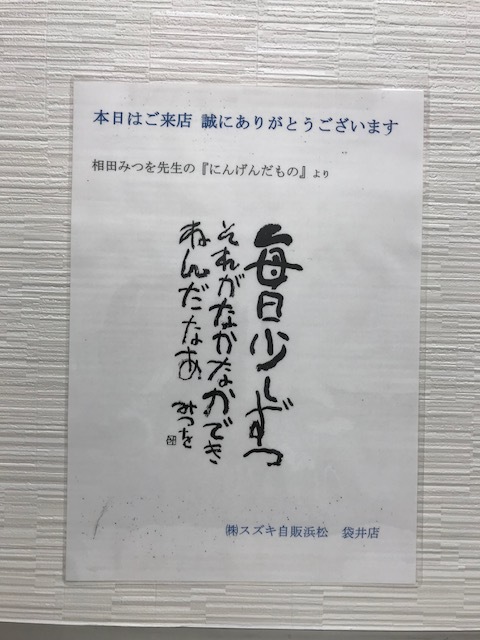 本日はご来店 誠にありがとうございます
相田みつを先生の『にんげんだもの』より
毎日少しずつ
それがなかなかでき
ねんだなあ
みつを
㈱スズキ自販浜松 袋井店